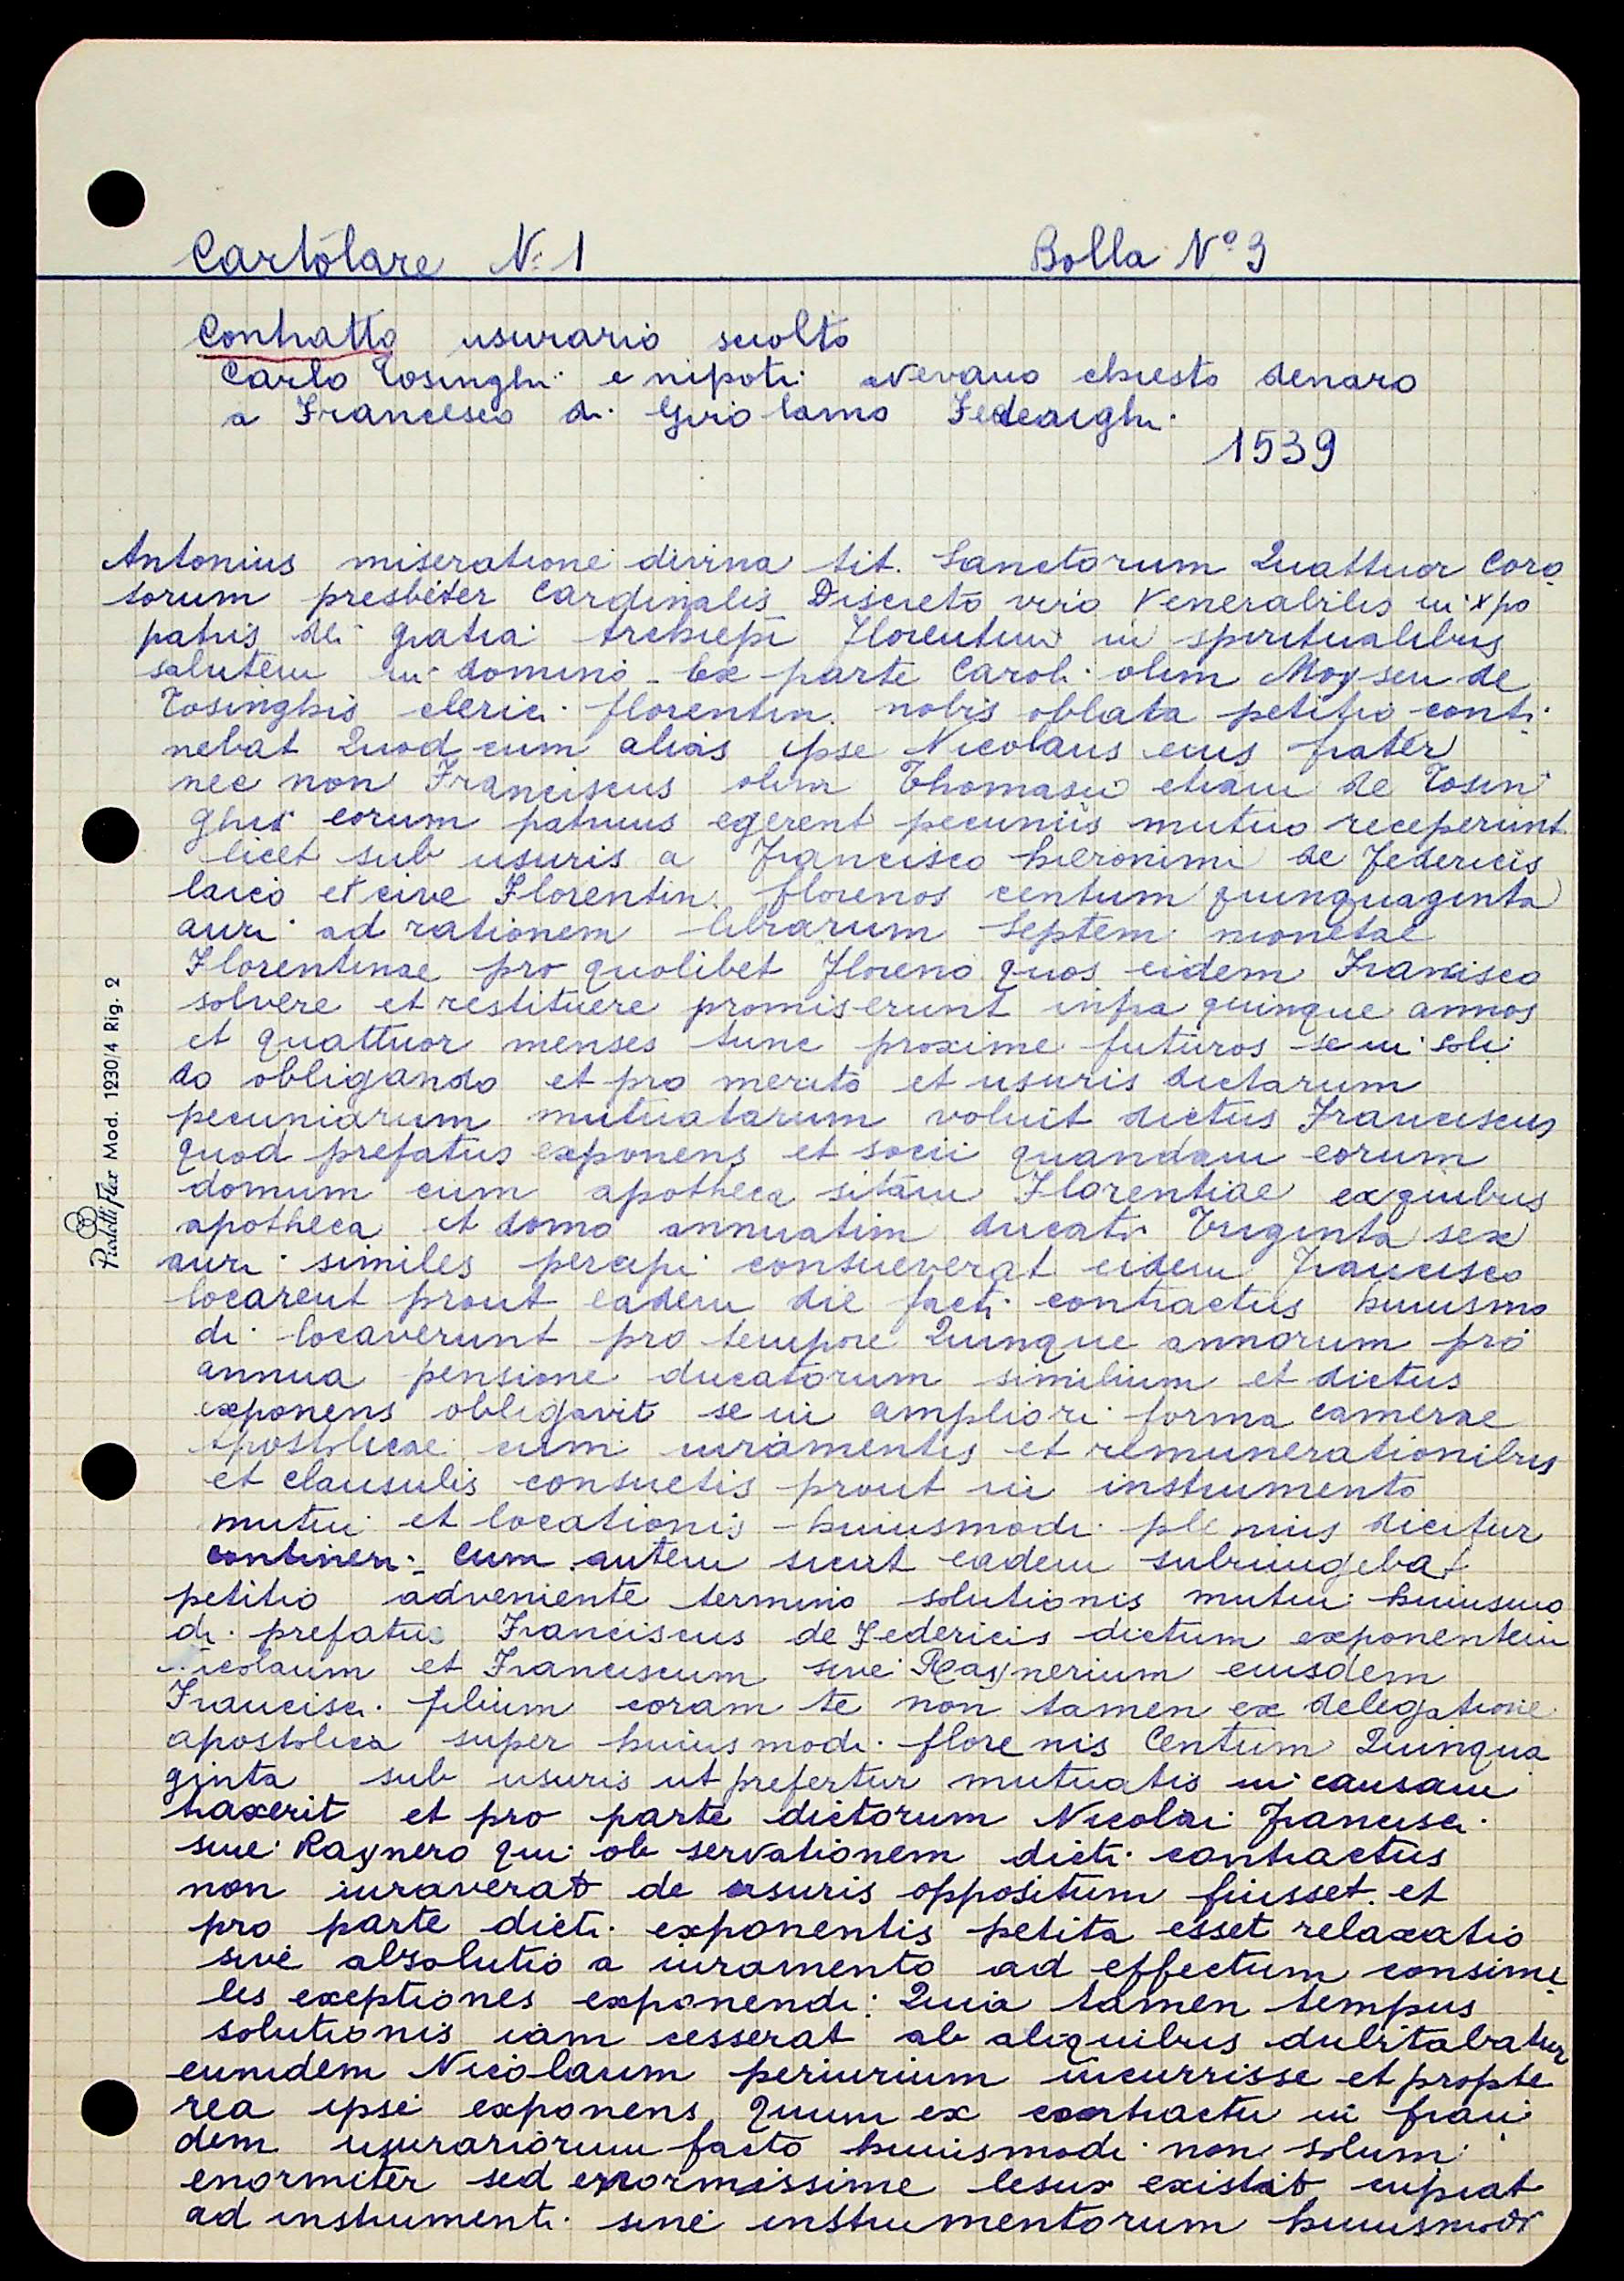 Cartolare N: 1
Bolla N° 3
Contratto usurario sciolto
Carlo Tosinghi e nipoti avevano chiesto denaro
a Francesco di Girolamo Fede
1539
Antonius miseratione divina tit. Sanctorum Quattuor Coro
torum presbiter Cardinalis Discreto viro Venerabilis in xpo
patris dei gratia Archiepi Florentin in spiritualibus
salutem in domino - Ex parte Caroli olim Moysen de
Tosinghis clerici florentin. nobis oblata petitio conti
nebat Quod cum alias ipse Nicolaus eius frater
nec non Franciscus olim Thomasii etiam de Tosin
ghis eorum patruus egerent pecuniis mutuo receperunt
licet sub usuris a Francisco hieronimi de Federicis
laico et cive Florentin. florenos centum quinquaginta
auri ad rationem librarum Septem monetae
Florentinae pro quolibet Floreno quos eidem Francisco
solvere et restituere promiserunt infra quinque annos
et quattuor menses tunc proxime futuros se in soli
do obligando et pro merito et usuris dictarum
pecuniarum mutuatarum voluit dictus Franciscus
quod prefatus exponens et socii quandam eorum
domum cum apotheca sitam Florentiae ex quibus
apotheca et domo annuatim ducati Triginta sex
auri similes percipi consueverat eidem Francisco
locarent prout eadem die facti contractus huiusmo
di locaverunt pro tempore Quinque annorum pro
annua pensione ducatorum similium et dictus
exponens obligavit se in ampliori forma camerae
Apostolicae cum iuramentis et remunerationibus
et clausulis consuetis prout in instrumento
mutui et locationis huiusmodi plenius dicitur
contineri - Cum autem sicut eadem subiungebat
petitio adveniente termino solutionis mutui huiusmo
di prefatus Franciscus de Federicis dictum exponentem
Nicolaum et Franciscum sive Raynerium eiusdem
Francisci filium coram te non tamen ex delegatione
apostolica super huiusmodi florenis Centum Quinqua
ginta sub usuris ut prefertur mutuatis in causam
traxerit et pro parte dictorum Nicolai Francisci
sive Raynero qui ob servationem dicti contractus
non iuraverat de usuris oppositum fuisset et
pro parte dicti exponentis petita esset relaxatio
sive absolutio a iuramento ad effectum consimi
les exeptiones exponendi: Quia tamen tempus
solutionis iam cesserat ab aliquibus dubitabatur
eumdem Nicolaum periurium incurrisse et propte
rea ipse exponens, quum ex contractu in frau
dem usurariorum facto huiusmodi non solum
enormiter sed enormissime lesus existat cupiat
ad instrumenti sive instrumentorum huiusmodi
Pigna Mod. 1230/4 Rig. 2